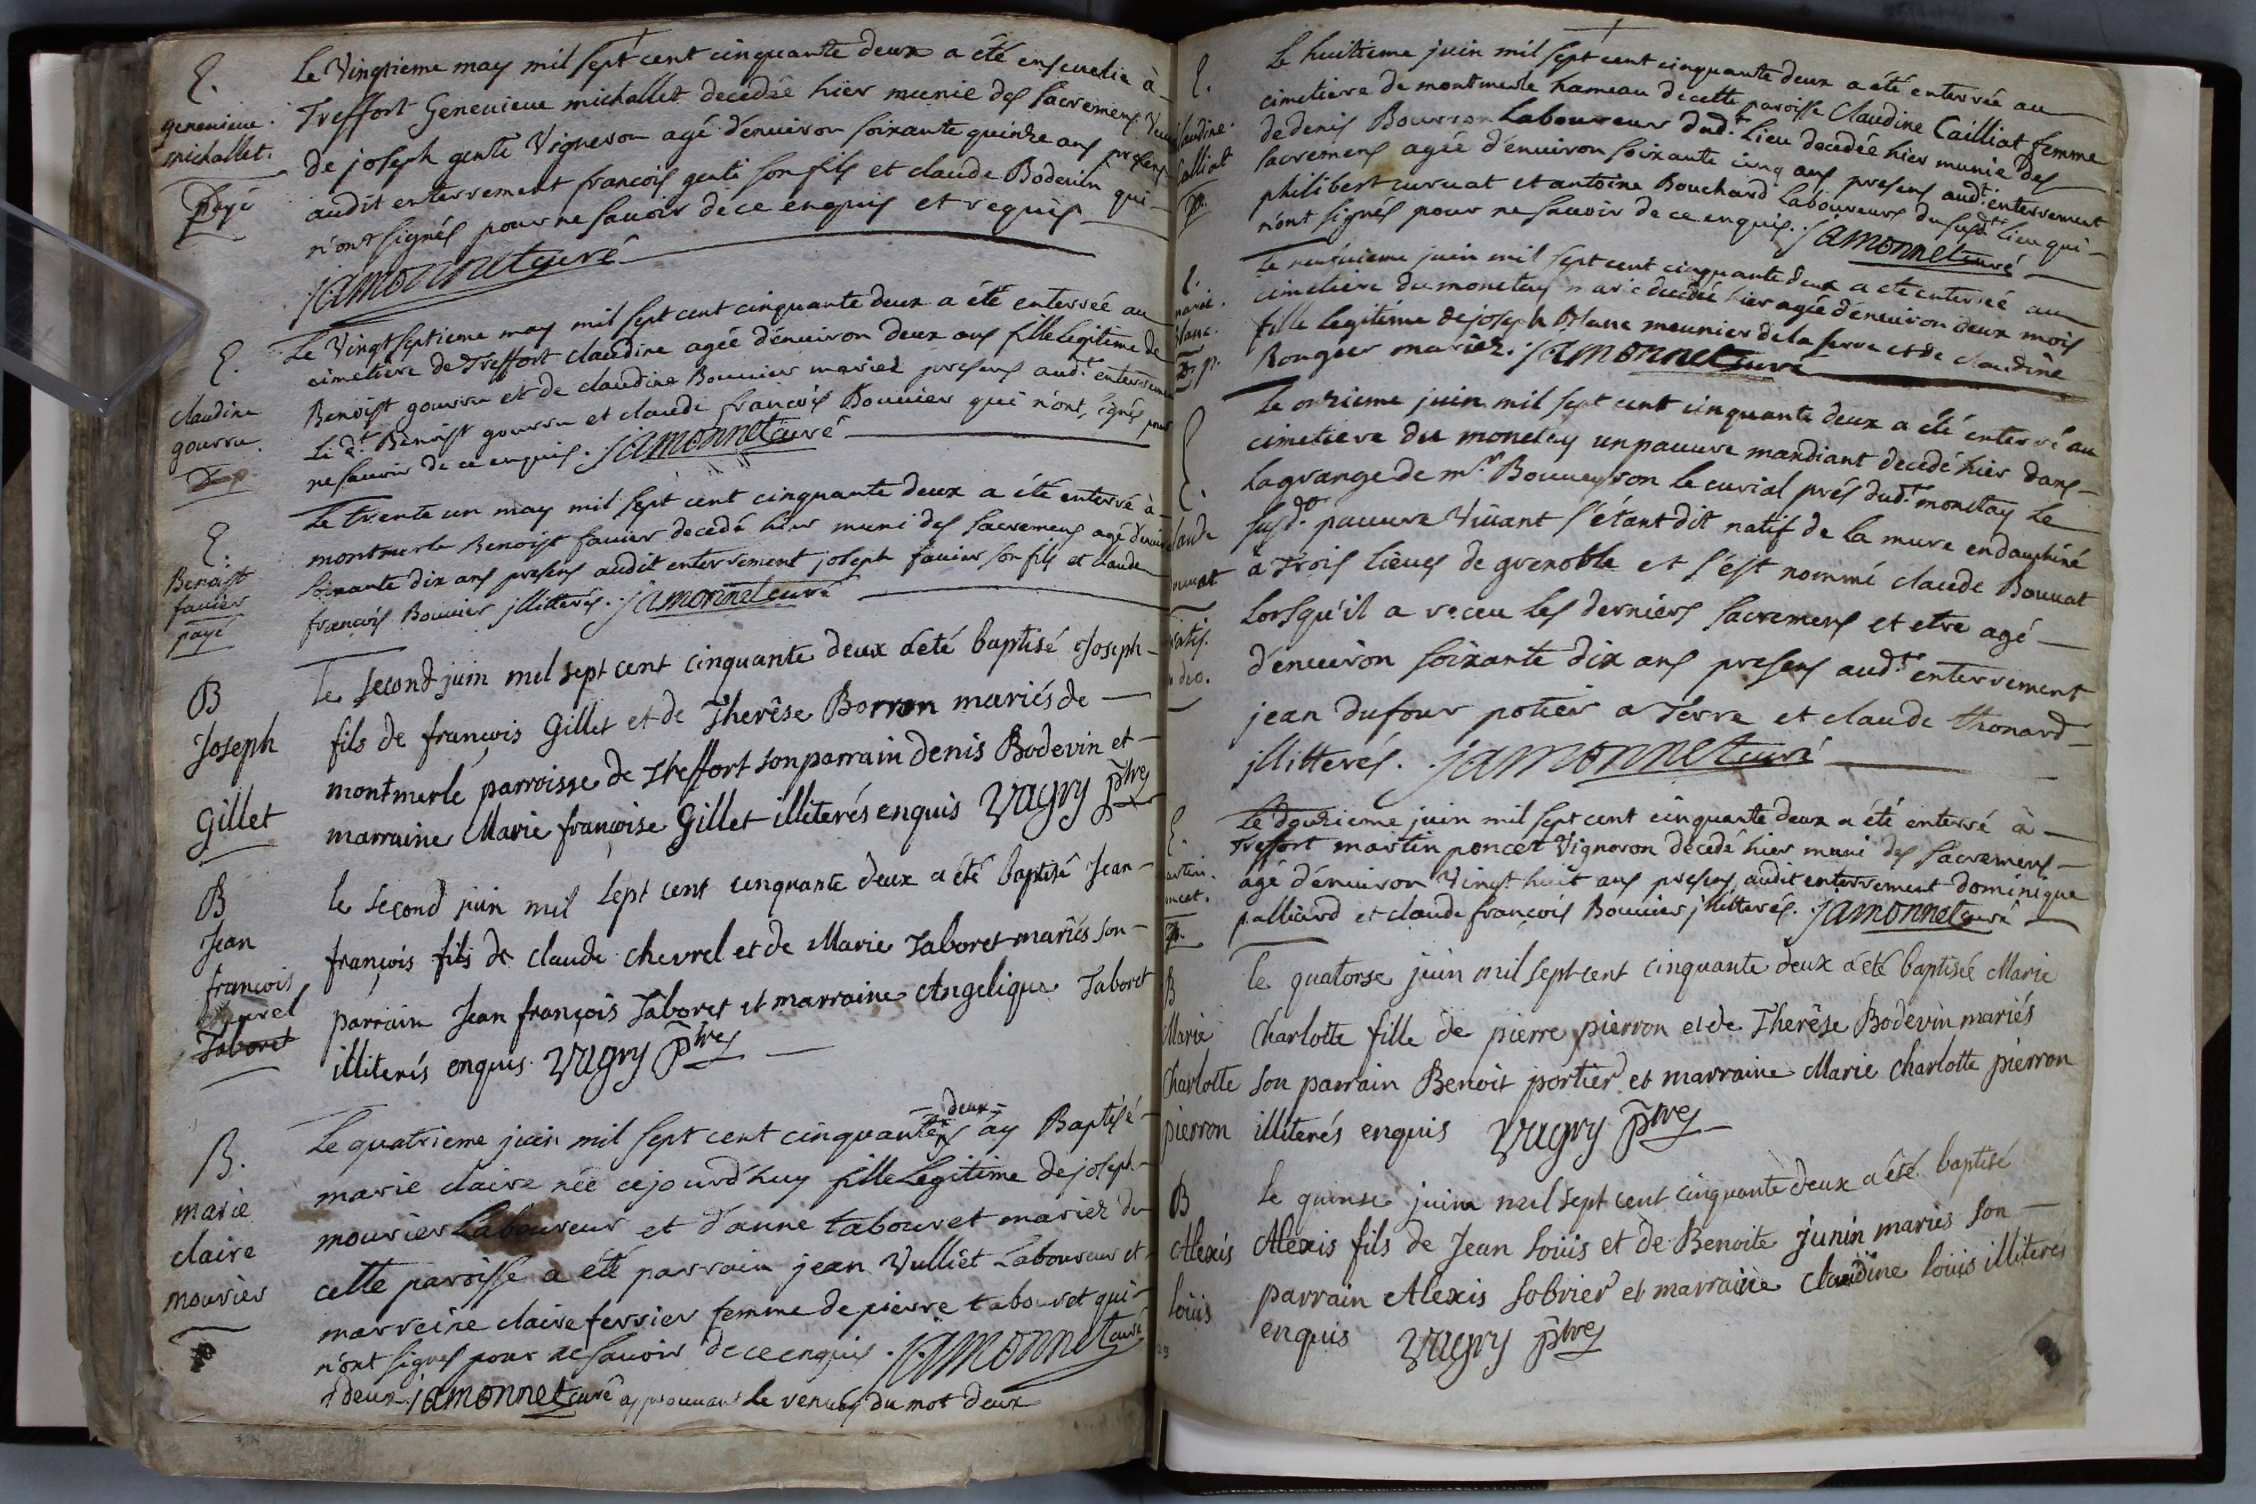 E.
genevieve
michallet.
payé
Le Vingtieme may mil sept cent cinquante deux a été ensevelie à
Treffort Genevieve michallet decedée hier munie des sacremens Veuve
de joseph genti Vigneron agé d'environ soixante quinze ans presens
audit enterrement francois genti son fils et claude Bodevin qui
n'ont signés pour ne savoir de ce enquis et requis
jamonnet curé
E.
claudine
gourru
Le Vingt septieme may mil sept cent cinquante deux a été enterreé au
cimetiere de Treffort claudine agée d'environ deux ans fille legitime de
Benoist gourru et de claudine Bouvier mariez presens audt enterrement
Le dt. Benoist gourru et claude francois Bouvier qui n'ont signés pour
ne savoir de ce enquis. jamonnet curé
E.
Benoist
favier
payé
Le trente un may mil sept cent cinquante deux a été enterré à
montmerle Benoist favier decedé hier muni des sacremens agé d'environ
soixante dix ans presens audit enterrement joseph favier son fils et claude
francois Bouvier jllitterés. jamonnet curé
B
Joseph
Gillet
le second juin mil sept cent cinquante deux a été baptisé Joseph
fils de françois Gillet et de Therêse Borron mariés de
montmerle parroisse de Treffort son parrain denis Bodevin et
marraine Marie françoise Gillet illiterés enquis Vugry ptre
B
Jean
francois
chevrel
Taboret
le second juin mil sept cent cinquante deux a été baptisé Jean
françois fils de claude chevrel et de Marie Taboret mariés son
parrain Jean françois Taboret et marraine Angelique Taboret
illiterés enquis Vugry ptre
B.
marie
claire
mourier
deux
Le quatrieme juin mil sept cent cinquante ay Baptisé
marie claire née cejourd'huy fille Legitime de joseph
mourier Laboureur et d'anne tabouret mariez de
cette paroisse a été parrain jean Vulliet Laboureur et
marreine claire ferrier femme de pierre tabouret qui
n'ont signés pour ne savoir de ce enquis. jamonnet curé
deux jamonnet curé approuvant le renvoy du mot deux
E.
claudine
Calliat
Le huitieme juin mil sept cent cinquante deux a été enterrée au
cimetiere de montmerle hameau de cette paroisse Claudine Cailliat femme
de denis Bourron Laboureur dudt. Lieu decedée hier munie des
sacremens agée d'environ soixante cinq ans presens audt. enterrement
philibert curvat et antoine Bouchard Laboureurs du susdt Lieu qui
n'ont signés pour ne savoir de ce enquis. jamonnet curé
E.
marie
blanc.
Le neuvieme juin mil sept cent cinquante deux a été enterreé au
cimetiere du monetay marie decedée hier agée d'environ deux mois
fille legitime de joseph Blanc meunier de la serra et de claudine
Rongier mariez. jamonnet curé
E.
claude
bouvat
gratis.
Le onzieme juin mil sept cent cinquante deux a été enterré au
cimetiere du monetay un pauvre mandiant decedé hier dans
La grange de mr. Bouveyron le curial prés dudt. monetay Le
susdt. pauvre Vivant s'étant dit natif de la mure en dauphiné
a trois lieues de grenoble et s'est nommé claude Bouvat
Lorsqu'il a receu les derniers sacremens et etre agé
d'environ soixante dix ans presens audt. enterrement
jean dufour potier a terre et claude thonard
jllitterés. jamonnet curé
E.
martin
poncet.
Le douzieme juin mil sept cent cinquante deux a été enterré à
treffort martin poncet Vigneron decedé hier muni des sacremens
agé d'environ Vingt huit ans presens audit enterrement dominique
palliard et claude françois Bouvier jllitterés. jamonnet curé
B
Marie
Charlotte
pierron
le quatorse juin mil sept cent cinquante deux a été baptisée Marie
Charlotte fille de pierre pierron et de Therêse Bodevin mariés
son parrain Benoit portier et marraine Marie charlotte pierron
illiterés enquis Vugry ptre
B
Alexis
loüis
le quinse juin mil sept cent cinquante deux a été baptisé
Alexis fils de Jean loüis et de Benoite junin mariés son
parrain Alexis sobrier et marraine claudine loüis illiterés
enquis Vugry ptre